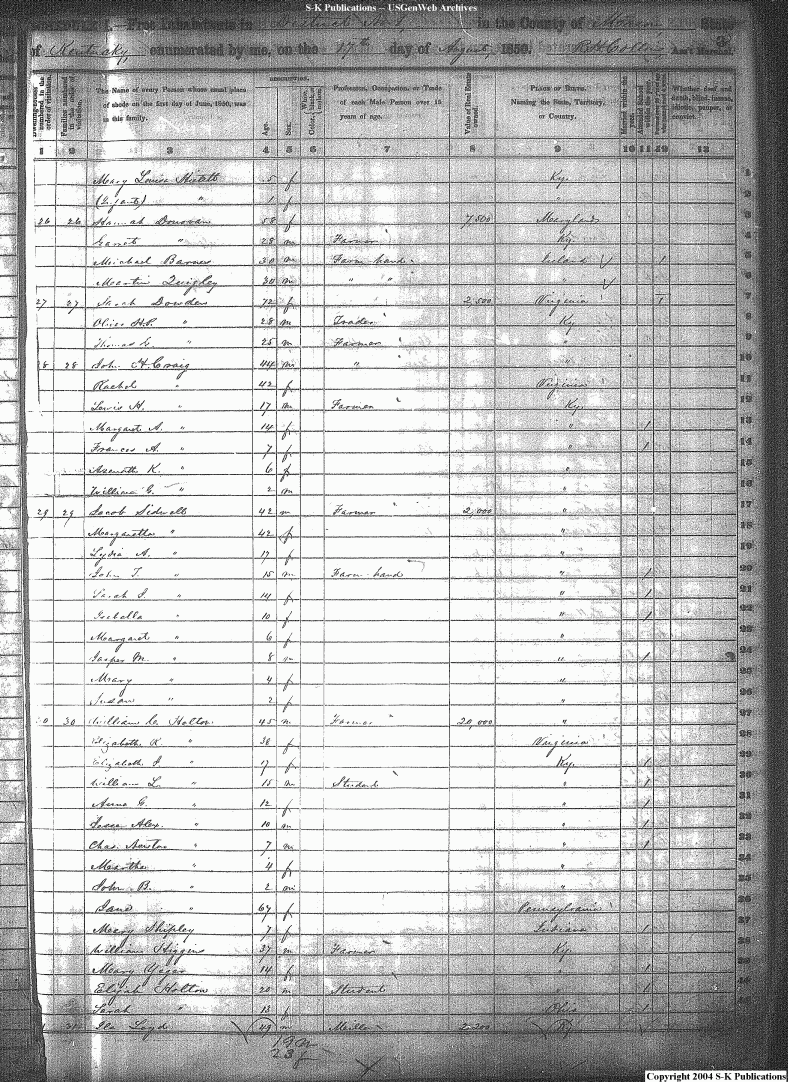 S-K Publications -- USGenWeb Archives
Free Inhabitants in in the County of Mason State
of Kentucky, enumerated by me, on the 17th day of August, 1850. Ass't Marshal.
The Name of every Person whose usual place of abode on the first day of June, 1850, was in this family.
DESCRIPTION.
Age. Sex.
Profession, Occupation, or Trade of each Male Person over 15 years of age.
Value of Real Estate owned.
PLACE OF BIRTH. Naming the State, Territory, or Country.
Whether deaf and dumb, blind, insane, idiotic, pauper, or convict.
1 2 3 4 5 6 7 8 9 10 11 12 13
Mary Louisa 5 f Ky. 1
(Infant) " 1 f " 2
26 26 Hannah Donovan 58 f 7,500 Maryland 3
Garret " 28 m Farmer Ky. 4
Michael Barnes 30 m Farm hand Ireland 1 5
Martin Quigley 30 m " " " 6
27 27 Sarah Dowden 72 f 2,500 Virginia 1 7
Oliver H.P. " 28 m Trader Ky. 8
Thomas G. " 25 m Farmer " 9
28 28 John H. Craig 44 m " " 10
Rachel " 42 f Virginia 11
Lewis H. " 17 m Farmer Ky. 12
Margaret A. " 14 f " 1 13
Frances A. " 7 f " 1 14
Asenath K. " 6 f " 15
William G. " 2 m " 16
29 29 Jacob Sidwell 42 m Farmer 2,000 " 17
Margaretta " 42 f " 18
Lydia A. " 17 f " 19
John T. " 15 m Farm hand " 1 20
Sarah J. " 14 f " 1 21
Isabella " 10 f " 1 22
Margaret " 6 f " 23
Jasper M. " 8 m " 1 24
Mary " 4 f " 25
Susan " 2 f " 26
30 30 William C. Holton 45 m Farmer 20,000 " 27
Elizabeth K. " 38 f Virginia 28
Elizabeth J. " 17 f Ky. 1 29
William L. " 15 m Student " 1 30
Anna G. " 12 f " 1 31
Alex. " 10 m " 1 32
Chas. " 7 m " 1 33
Martha " 4 f " 34
John B. " 2 m " 35
Jane " 67 f Pennsylvania
Mary Shipley 7 f Indiana 1
William Higgins 37 m Farmer Ky.
Mary 14 f " 1
Elijah Holton 20 m Student " 1
Sarah " 13 f Ohio 1
Loyd 49 m Miller 2,200 Ky
19 m
23 f
Copyright 2004 S-K Publications